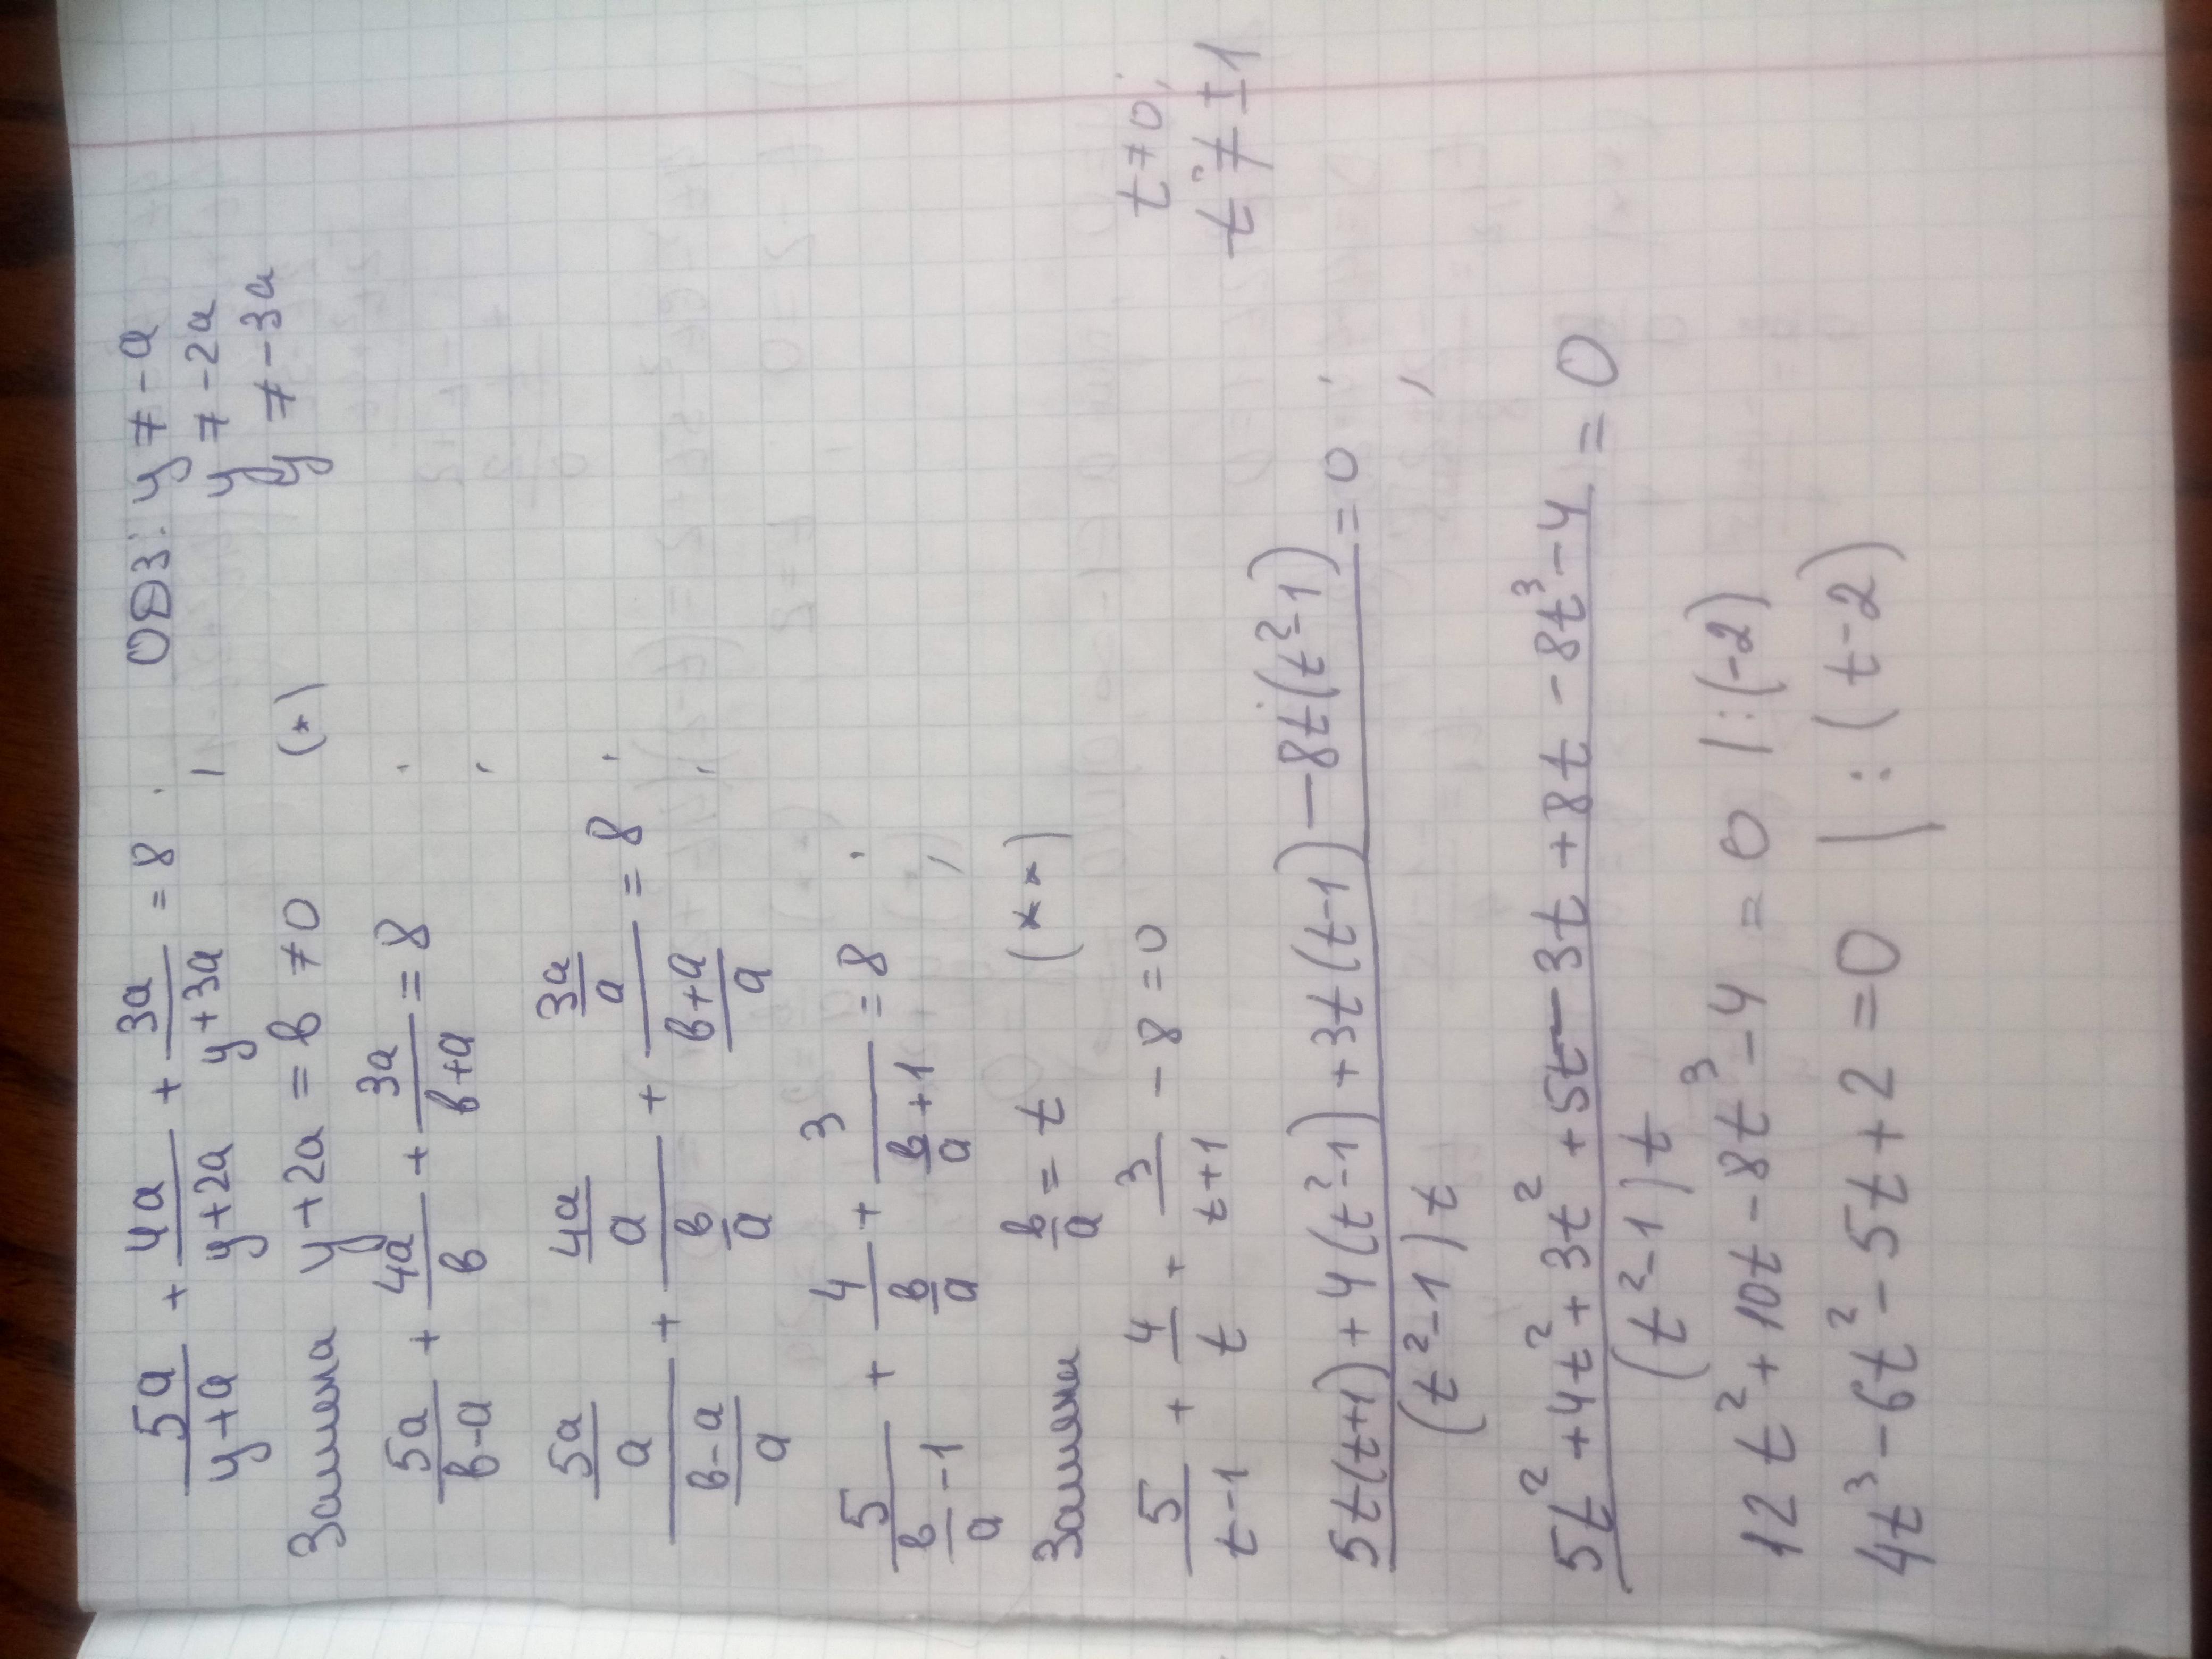 5a/(y+a) + 4a/(y+2a) + 3a/(y+3a) = 8; ОДЗ: y ≠ -a
y ≠ -2a
y ≠ -3a
Замена y + 2a = в ≠ 0 (*)
5a/(в-a) + 4a/в + 3a/(в+a) = 8;
(5a/a)/((в-a)/a) + (4a/a)/(в/a) + (3a/a)/((в+a)/a) = 8;
5/(в/a - 1) + 4/(в/a) + 3/(в/a + 1) = 8;
Замена в/a = t (**)
5/(t-1) + 4/t + 3/(t+1) - 8 = 0 t ≠ 0;
t ≠ ±1
(5t(t+1) + 4(t²-1) + 3t(t-1) - 8t(t²-1))/((t²-1)t) = 0;
(5t² + 4t² + 3t² + 5t - 3t + 8t - 8t³ - 4)/((t²-1)t) = 0
12t² + 10t - 8t³ - 4 = 0 |:(-2)
4t³ - 6t² - 5t + 2 = 0 | : (t-2)